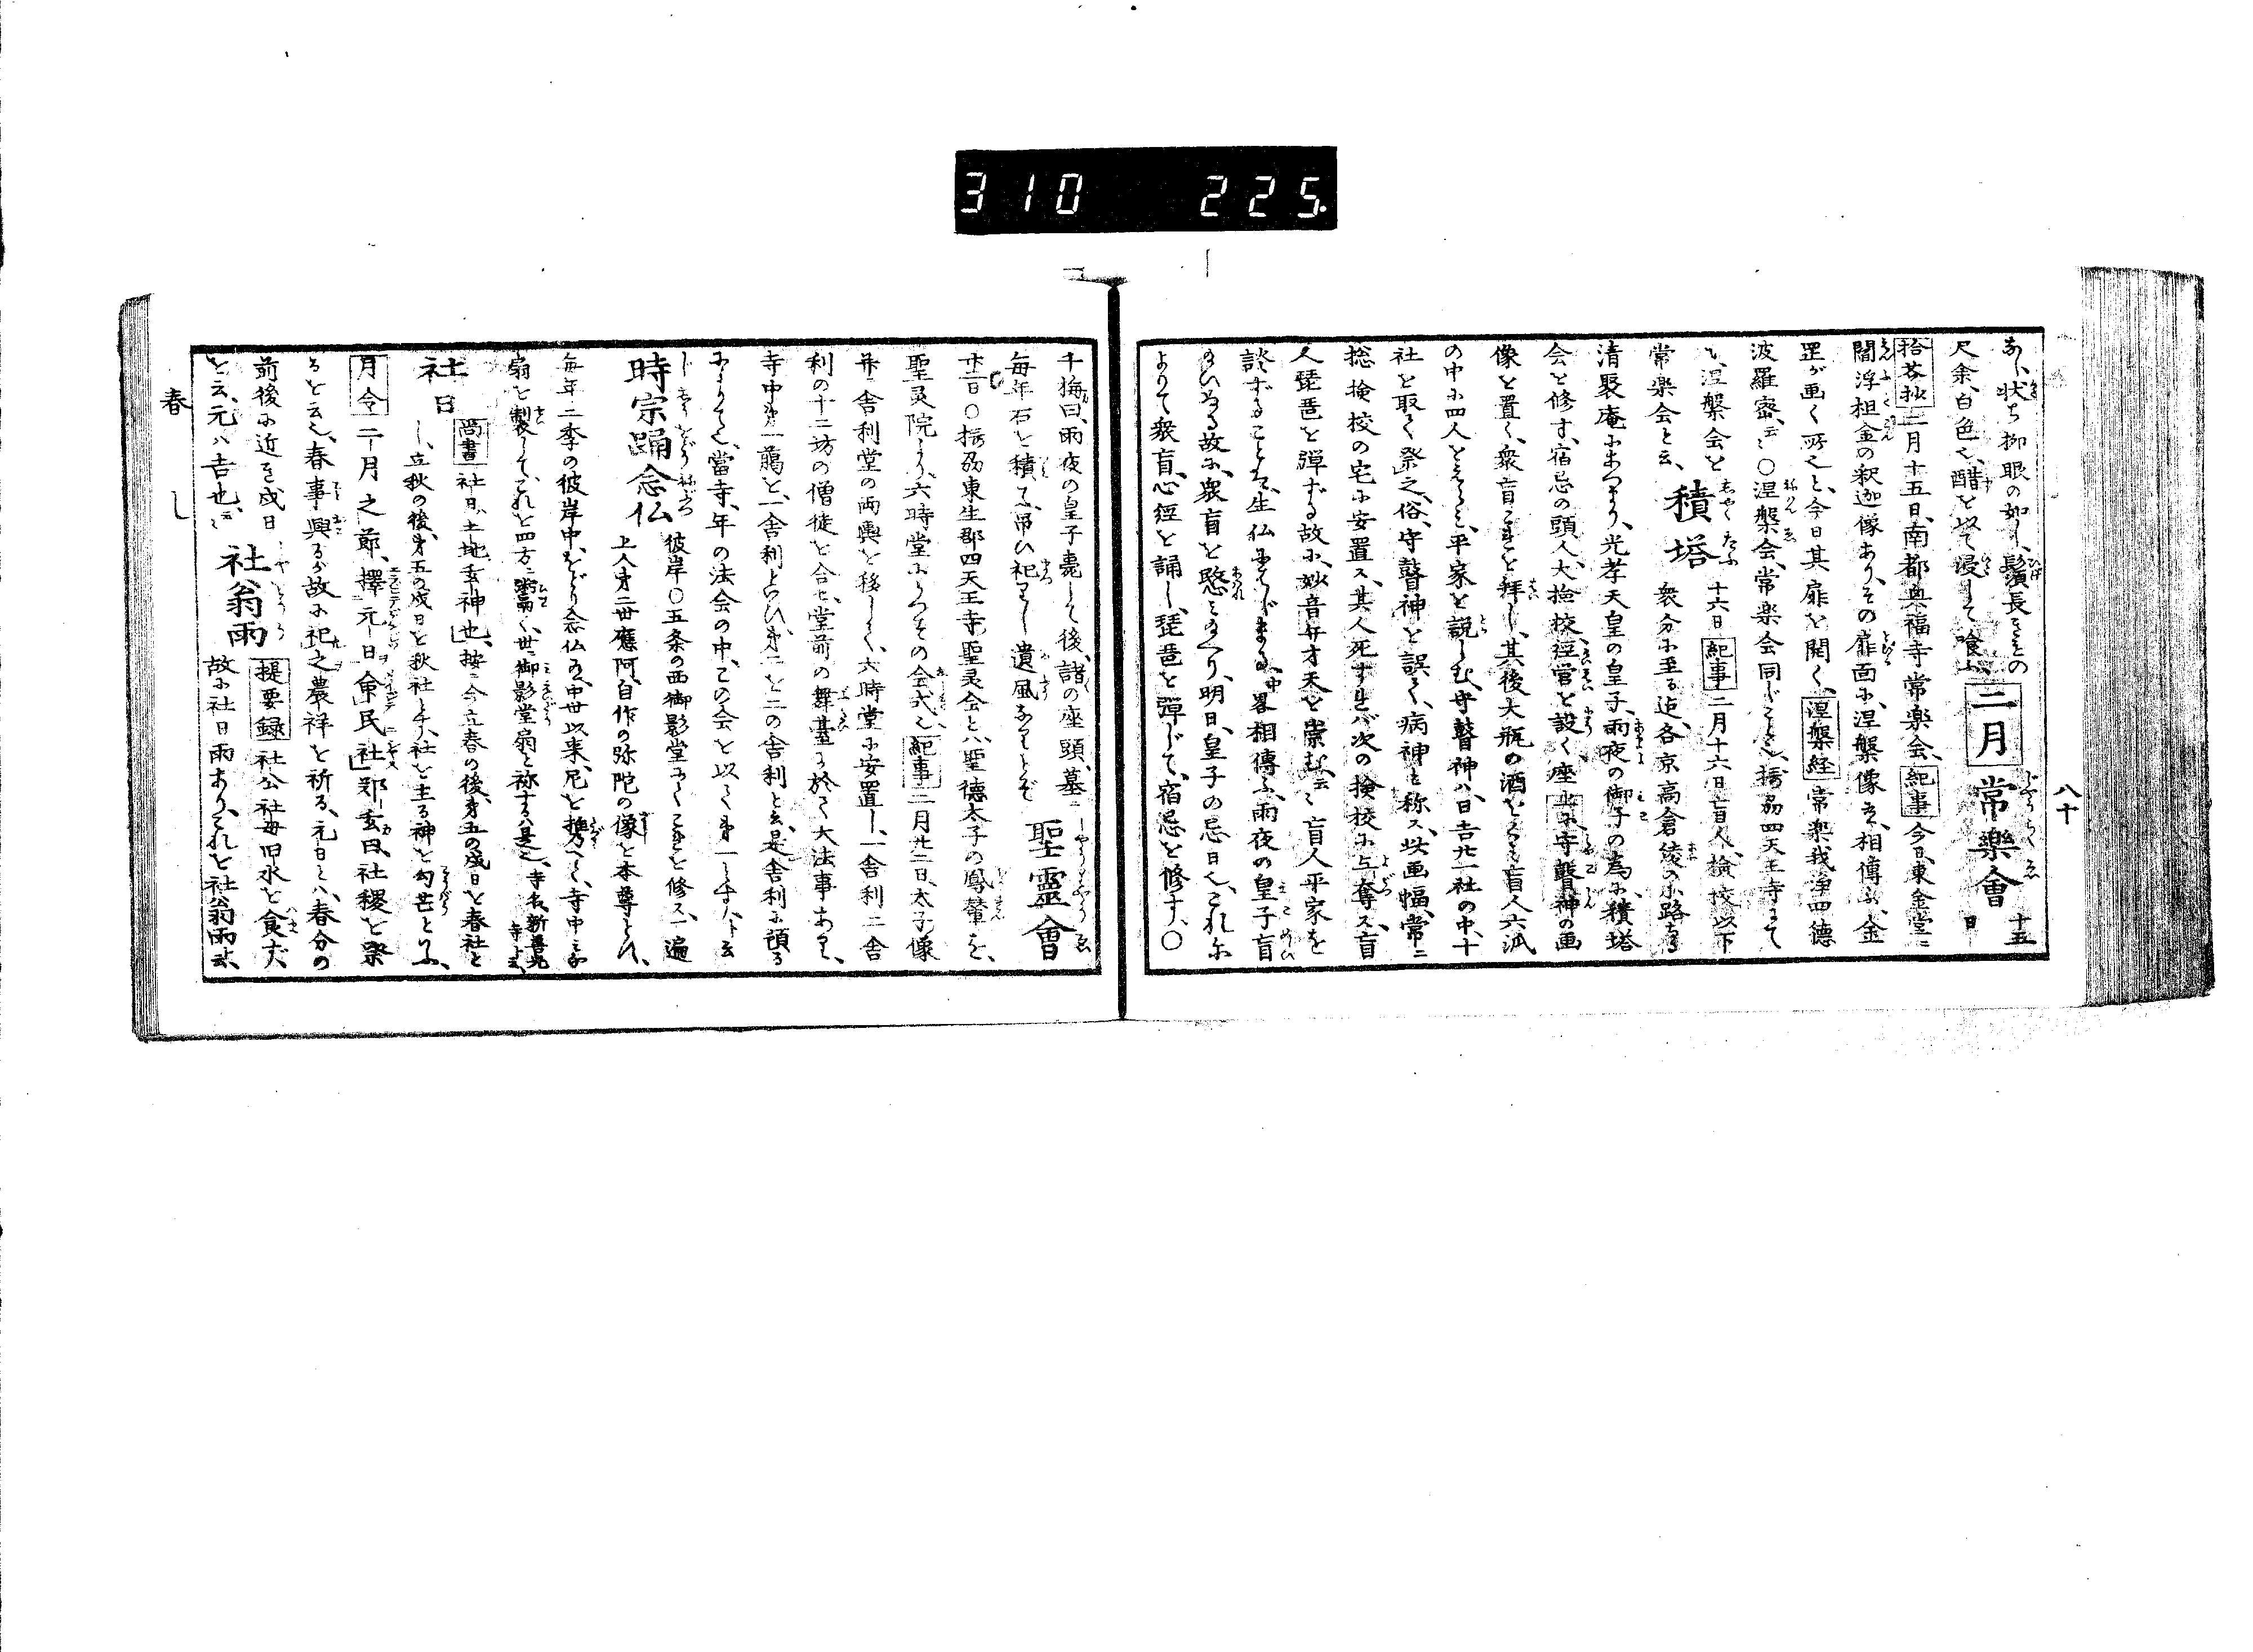 310 225.
八十
あり、状ち柳眼の如し、鬚長きもの
尺余、白色也、醋を以て浸して喰ふ 二月 常樂會 じやうらくゑ 十五日
拾芥抄 二月十五日、南都興福寺常楽会、紀事 今日、東金堂ニ
閻浮檀金の釈迦像あり、その扉面に、涅槃像を、相傳ふ、金
罡が画く所也と、今日其扉を開く、涅槃経 常楽我浄四徳
波羅密、云々 ○涅槃会、常楽会同じことなり、摂州四天王寺にて
も、涅槃会と
常楽会と云、 積塔 しやくたふ 十六日 紀事 二月十六日、盲人、検校以下
衆分に至る迄、各京高倉綾の小路なる
清聚庵にあつまり、光孝天皇の皇子、雨夜の御子の為に、積塔
会を修す、宿忌の頭人、大検校、経営を設く、座上に守瞽神の画
像を置く、衆盲これを拝し、其後大瓶の酒を 盲人六派
の中に四人 平家を説しむ、守瞽神ハ、日吉廿一社の中、十
社を取て祭之、俗、守瞽神を誤て、病神と称ス、此画幅、常ニ
惣検校の宅に安置ス、其人死すれバ次の検校に与奪ス、盲
人琵琶を弾ずる故に、妙音弁才天を崇む、云々 盲人平家を
談ずること、生仏に 中畧 相傳ふ、雨夜の皇子盲
目ひ給ふ故に、衆盲を愍み給へり、明日、皇子の忌日也、これに
よりて衆盲、心経を誦し、琵琶を弾じて、宿忌を修す、○
千梅曰、雨夜の皇子薨して後、諸の座頭、墓ニ
毎年石を積て、吊ひ祀りし遺風なりとぞ 聖靈會 しやうりやうゑ
廿二日 ○摂州東生郡四天王寺聖灵会とハ、聖徳太子の鳳輦を、
聖灵院より、六時堂にうつすの会式也、紀事 二月廿二日、太子像
并ニ舎利堂の両輿を移して、六時堂に安置し、一舎利二舎
利の十二坊の僧徒を合セ、堂前の舞臺に於て大法事あり、
寺中第一﨟を、一舎利といひ、第二を二の舎利と云、是舎利に預る
によりて也、當寺、年の法会の中、この会を以て第一とす、ト云
時宗踊念仏 じしうをどりねぶつ 彼岸 ○五条の西御影堂にてこれを修ス、一遍
上人第二世應阿、自作の弥陀の像を本尊とし、
毎年二季の彼岸中、をどり念仏 中世以来、尼を携へて、寺中ニ
扇を製して、これを四方ニ鬻く、世ニ御影堂扇と称するハ是也、寺を、新善光寺と云、
社日 尚書 社日ハ、土地玄神也、按ニ今立春の後、第五の戌日を春社と
し、立秋の後、第五の戌日を秋社とす、社を主る神を勾芒といふ、
月令 二月之節、擇元日命民社、鄭玄曰、社稷を祭
ると云也、春事興るが故に祀之農祥を祈る、元日とハ、春分の
前後に近き戌日
を云、元ハ吉也、云々 社翁雨 しやをうう 提要録 社公社母旧水を食ハず、
故に社日雨あり、これを社翁雨と云、
春 し